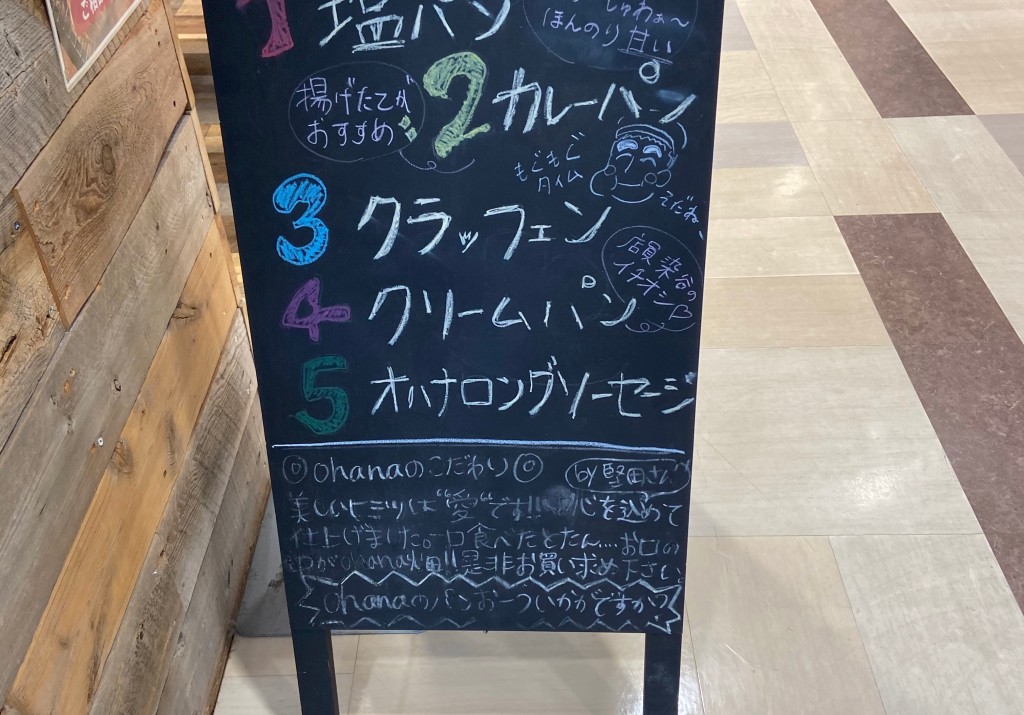 1 塩パン
しゅわぁ〜
ほんのり甘い
揚げたてが
おすすめ
2 カレーパン
もぐもぐ
タイム
そだねー
3 クラッフェン
店員染谷の
イチオシ
4 クリームパン
5 オハナロングソーセージ
◎ohanaのこだわり◎ by 堅田さん
美しいヒミツは“愛“です!! 心を込めて
仕上げました。一口食べたとたん....お口の
中がohana畑!!是非お買い求め下さい
ohanaのパンお一ついかがですか?